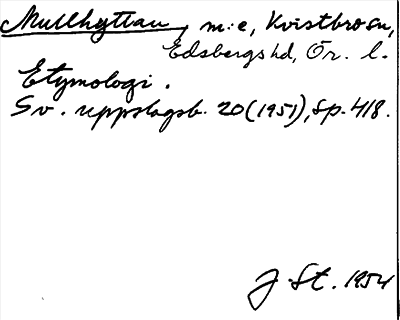 Mullhyttan, m:e, Kvistbro sn,
Edsbergs hd, Ör. l.
Etymologi.
Sv. uppslagsb. 20 (1951), sp. 418.
J St. 1954